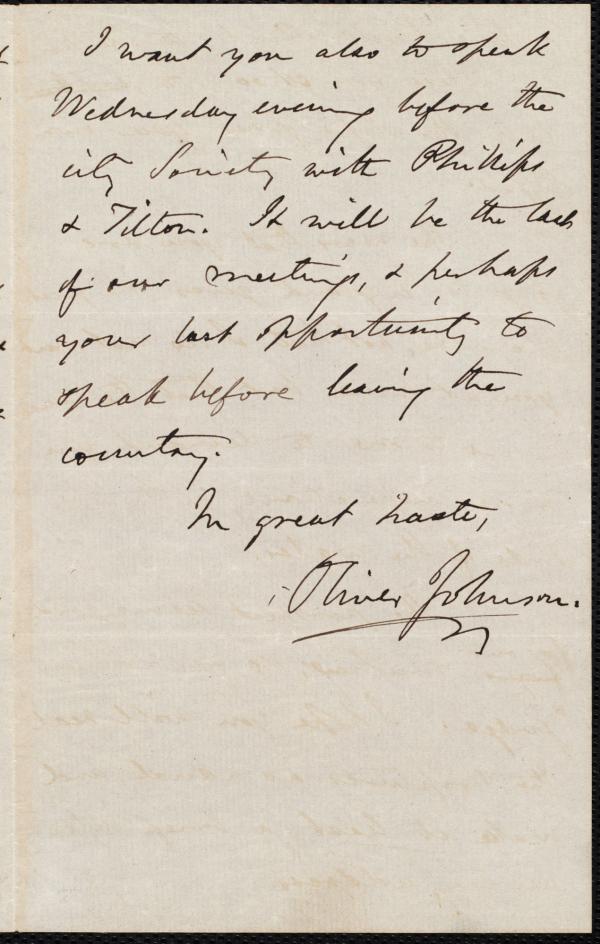 I want you also to speak
Wednesday evening before the
city Society with Phillips
& Tilton. It will be the last
of our meetings, & perhaps
your last opportunity to
speak before leaving the
country.
In great haste,
Oliver Johnson.